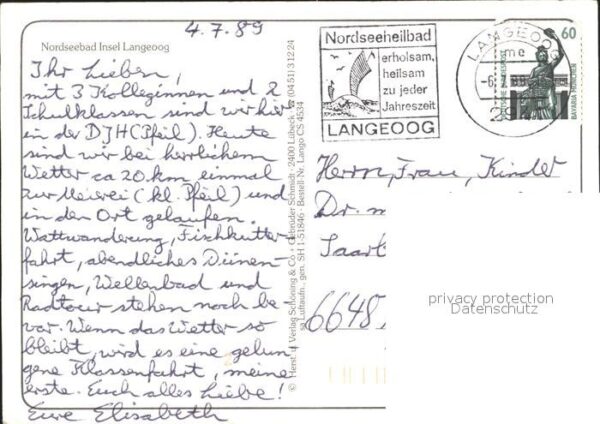 4.7.89
Nordseebad Insel Langeoog
Ihr Lieben,
mit 3 Kolleginnen und 2
Schulklassen sind wir hier
in der DJH (Pfeil). Heute
sind wir bei herrlichem
Wetter ca 20 km, einmal
zur Meierei (kl. Pfeil) und
in den Ort gelaufen.
Wattwanderung, Fischkutter-
fahrt, abendliches Dünen-
singen, Wellenbad und
Radtour stehen noch be-
vor. Wenn das Wetter so
bleibt, wird es eine gelun
gene Klassenfahrt, meine
erste. Euch alles Liebe!
Eure Elisabeth
© Herst. u. Verlag Schöning & Co + Gebrüder Schmidt · 2400 Lübeck (0451) 31224
Luftaufn., gen. SH 1-51846 · Bestell-Nr. Lango CS 4534
Nordseeheilbad
erholsam,
heilsam
zu jeder
Jahreszeit
LANGEOOG
LANGEOOG
me
60
DEUTSCHE BUNDESPOST
BAVARIA MÜNCHEN
Herrn, Frau, Kinder
Dr. m
Saart
6648
privacy protection
Datenschutz